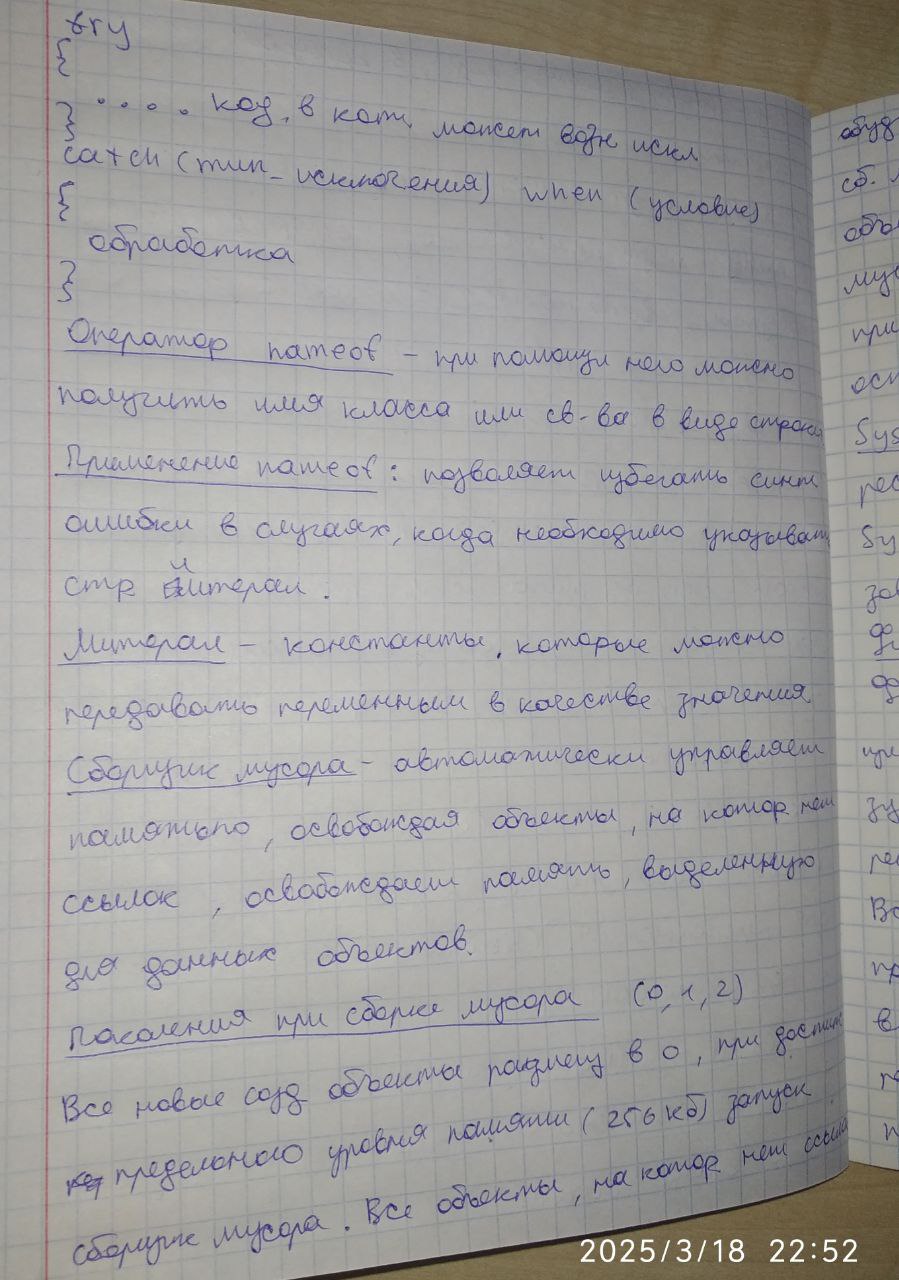 try
{
.... код, в кот. может возн искл
}
catch (тип_исключения) when (условие)
{
обработка
}
Оператор nameof – при помощи него можно
получить имя класса или св-ва в виде строки
Применение nameof: позволяет избегать синт
ошибки в случаях, когда необходимо указывать
стр литерал.
Литерал – константы, которые можно
передавать переменным в качестве значения
Сборщик мусора – автоматически управляет
памятью, освобождая объекты, на котор нет
ссылок, освобождает память, выделенную
для данных объектов.
Поколения при сборке мусора (0, 1, 2)
Все новые созд объекты размещ в 0, при достиж
предельного уровня памяти (256 кб) запуск
сборщик мусора. Все объекты, на котор нет ссыл
сб.
объе
при
Sys
рес
Sy
в
2025/3/18 22:52